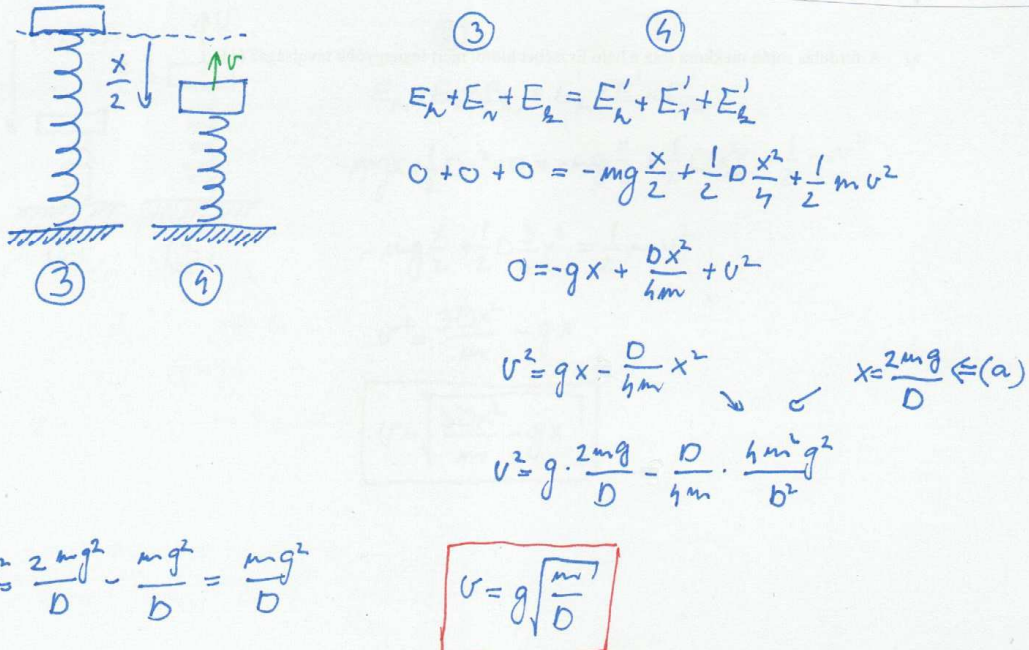 ③ ④
x/2 v
③ ④
E_h + E_r + E_k = E_h' + E_r' + E_k'
0 + 0 + 0 = -mg x/2 + 1/2 D x²/4 + 1/2 m v²
0 = -gx + Dx²/4m + v²
v² = gx - D/4m x² x = 2mg/D ⇐ (a)
v² = g · 2mg/D - D/4m · 4m²g²/D²
² = 2mg²/D - mg²/D = mg²/D
v = g√(m/D)